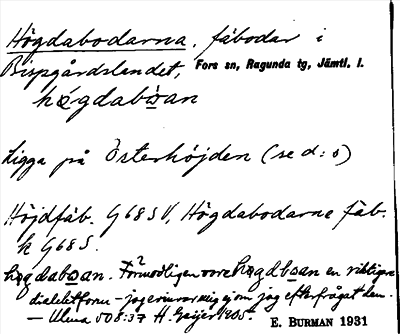 Högdabodarna, fäbodar i
Bispgårdslandet, Fors sn, Ragunda tg, Jämtl. l.
hǿgdabo̲an
Ligga på Österhöjden (se d:o)
Höjdfäb. G68SV, Högdabodarne fäb.
k G68S.
høgdabo̲an. Förmodligen vore høgdbo̲an en riktigare
dialektform – jag ej om jag efterfrågat den.
– Ulma 508:37 H. Geijer 1905.
E. BURMAN 1931